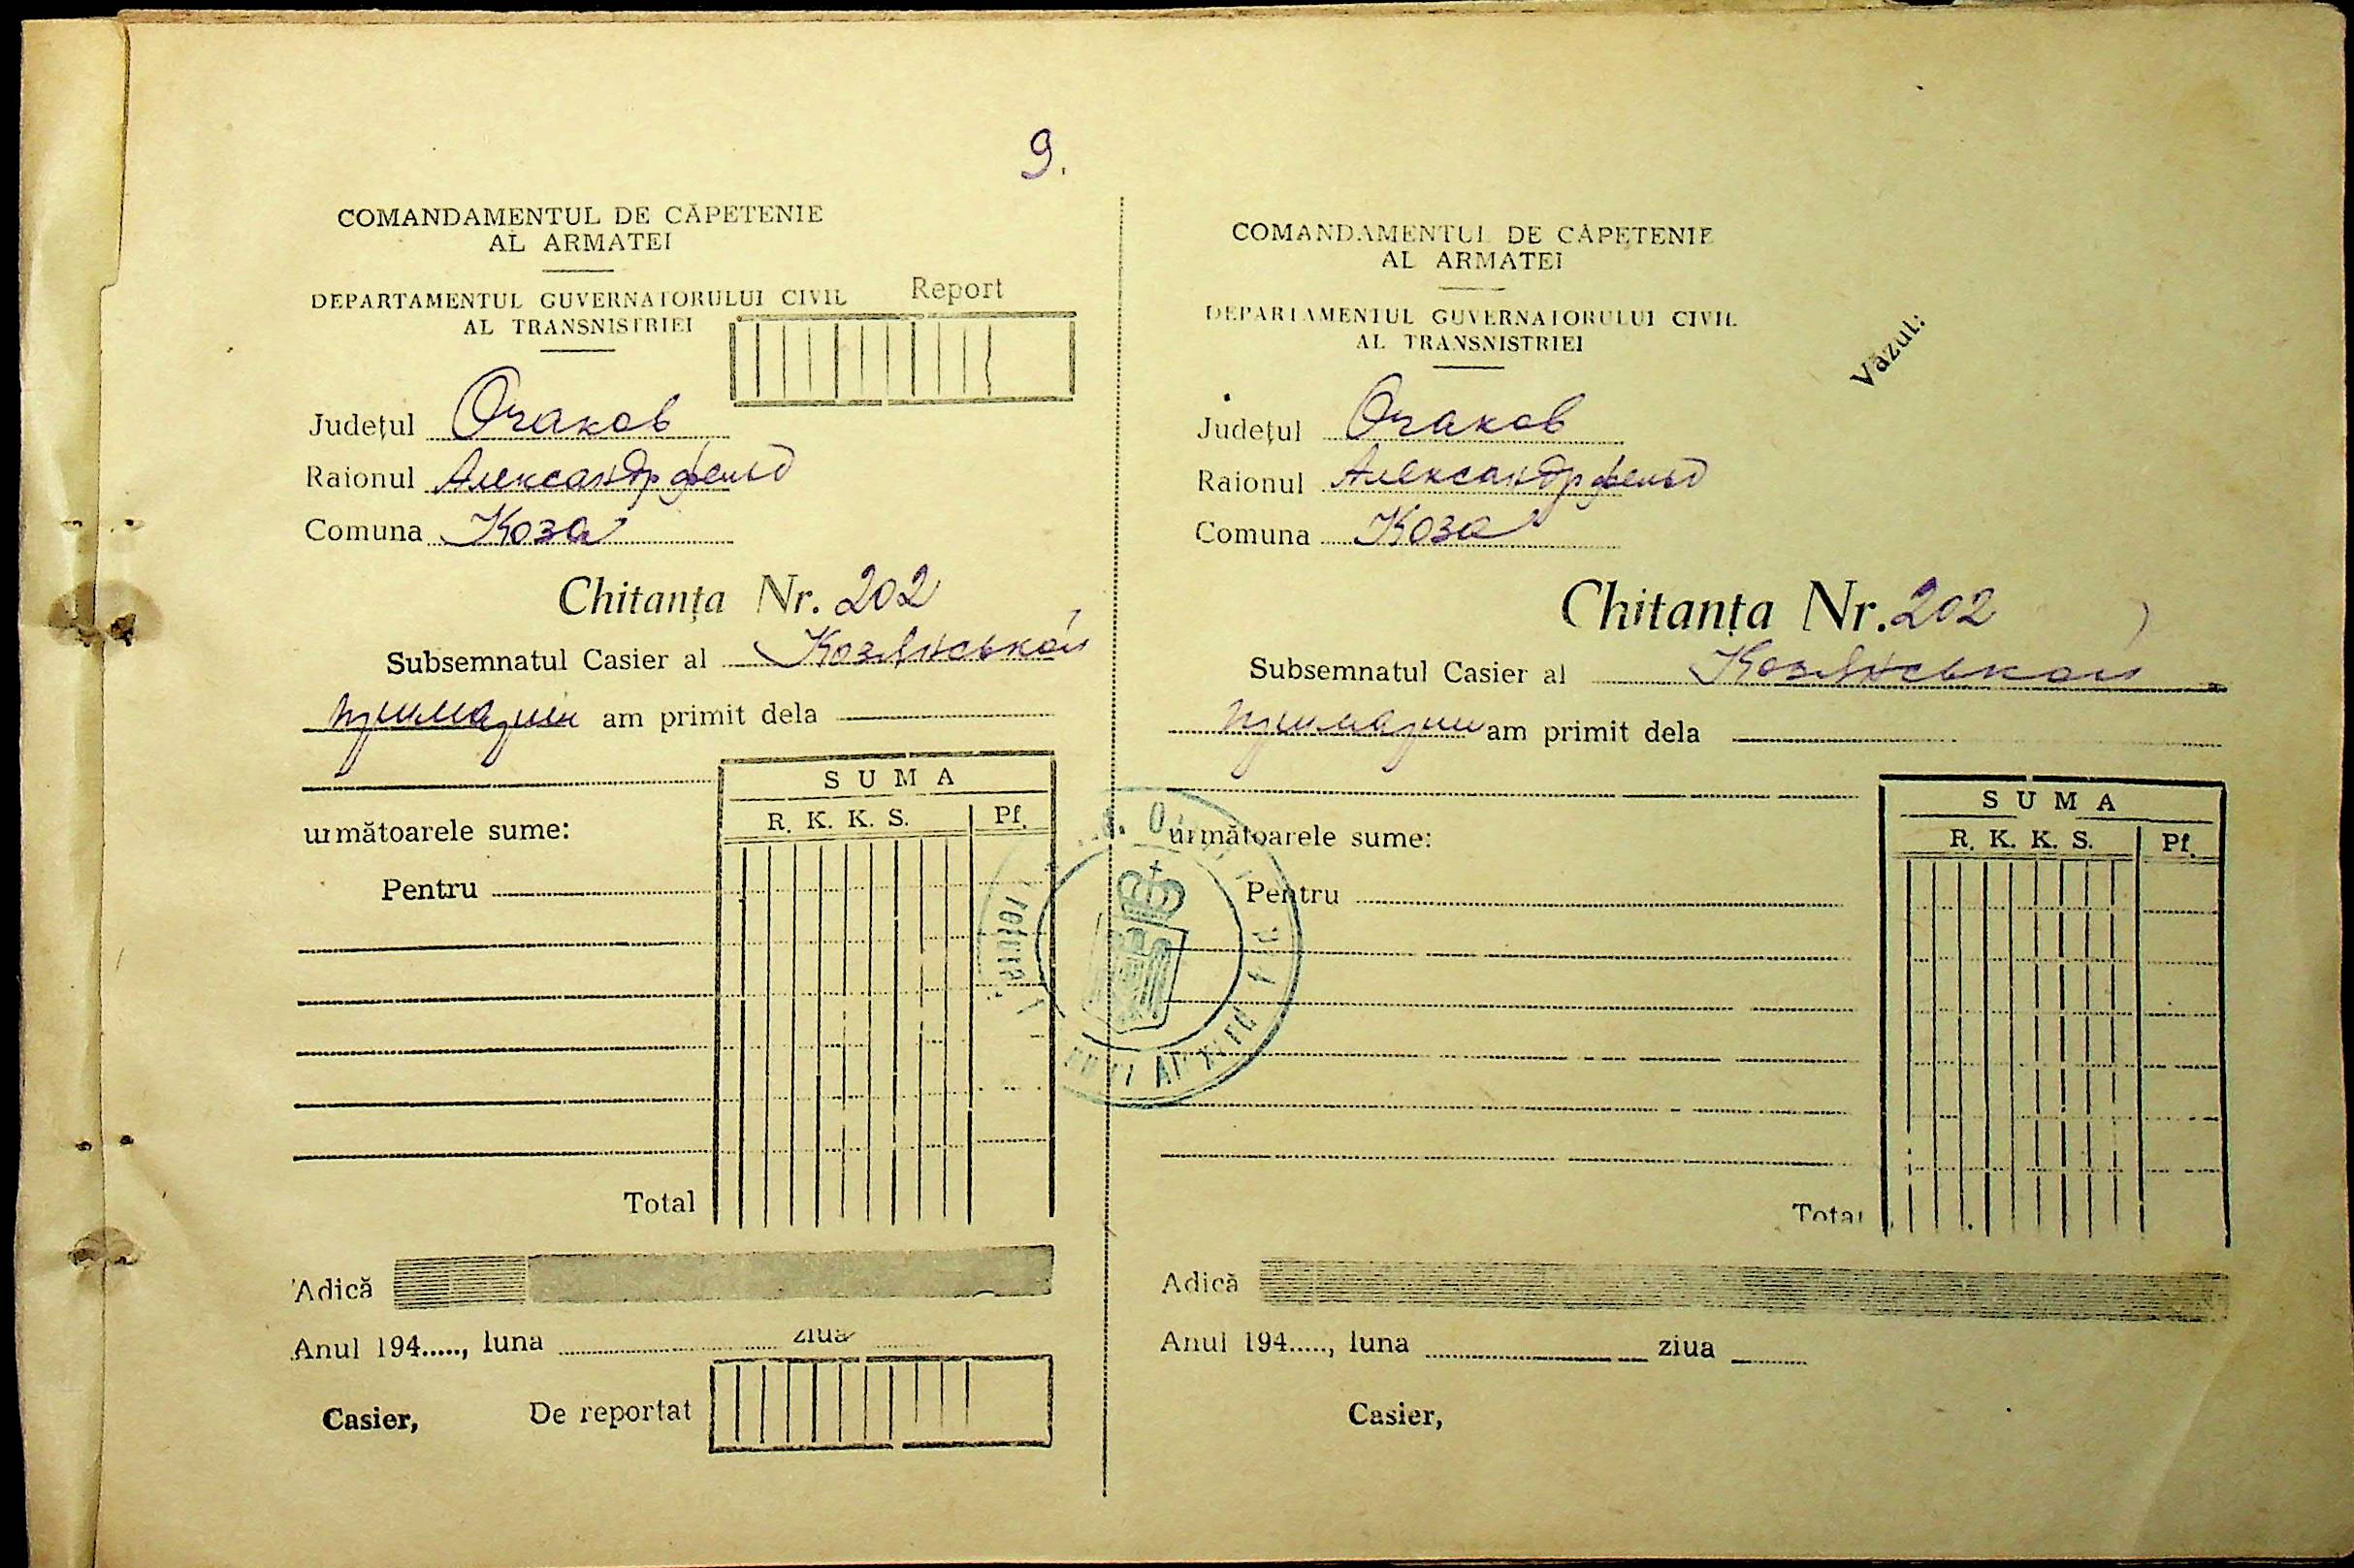 9.
COMANDAMENTUL DE CĂPETENIE
AL ARMATEI
DEPARTAMENTUL GUVERNATORULUI CIVIL
AL TRANSNISTRIEI
Report
Județul Очаков
Raionul Александрфельд
Comuna Коза
Chitanța Nr. 202
Subsemnatul Casier al Козлянськой
примарии am primit dela
SUMA
următoarele sume:
R. K. K. S. Pf.
Pentru
Total
Adică
Anul 194....., luna ziua
Casier, De reportat
COMANDAMENTUL DE CĂPETENIE
AL ARMATEI
DEPARTAMENTUL GUVERNATORULUI CIVIL
AL TRANSNISTRIEI
Văzut:
Județul Очаков
Raionul Александрфельд
Comuna Коза
Chitanța Nr. 202
Subsemnatul Casier al Козлянськой
примарии am primit dela
SUMA
următoarele sume:
R. K. K. S. Pf.
Pentru
Total
Adică
Anul 194....., luna ziua
Casier,